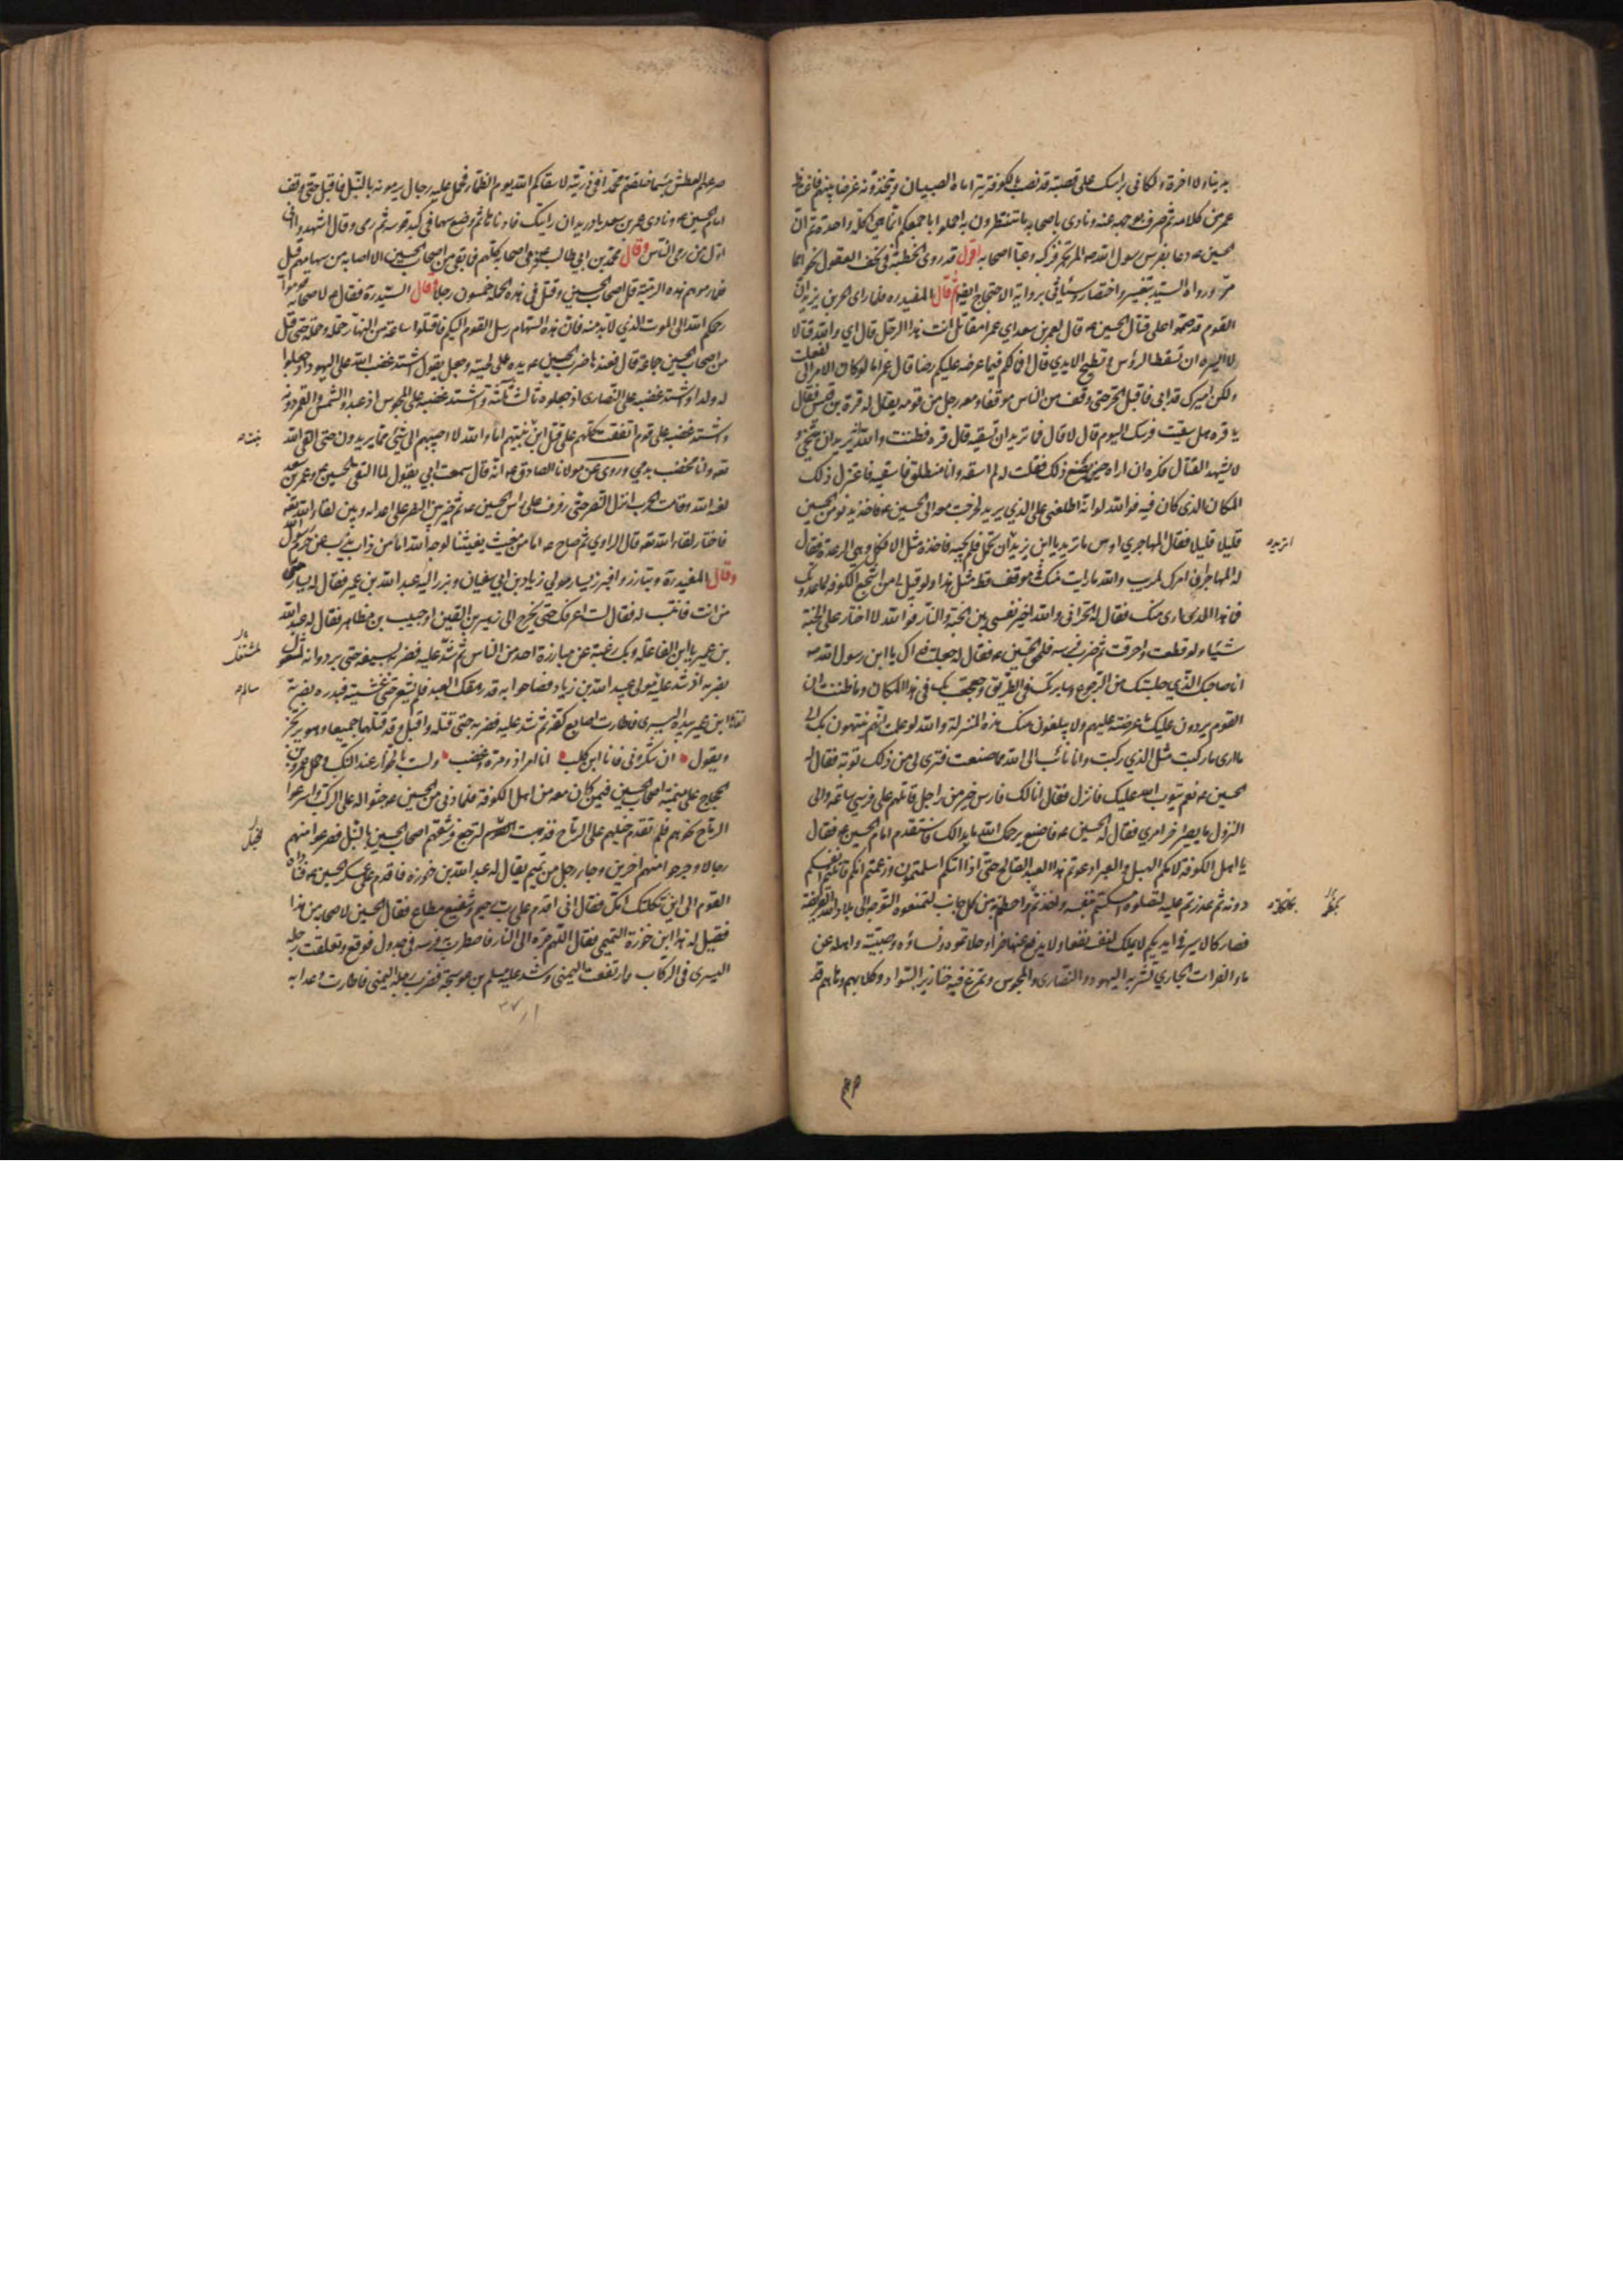 بدنيا ولا اخرة ولكاني براسك على قصبة قد نصب بالكوفة يتراماه الصبيان ويتخذونه غرضا بينهم فاغتاظ
عمر من كلامه ثم صرف بوجهه عنه ونادى باصحابه ما تنتظرون به احملوا باجمعكم انما هي اكلة واحدة ثم ان
الحسين ع دعا بفرس رسول الله ص المرتجز فركبه وعبأ اصحابه اقول قد روى الخطبة في تحف العقول نحوا مما
مر ورواه السيد بتغيير واختصار وسيأتي برواية الاحتجاج ايضا ثم قال المفيد ره فلما راى الحر بن يزيد ان
القوم قد صمموا على قتال الحسين ع قال لعمر بن سعد اي عمر امقاتل انت هذا الرجل قال اي والله قتالا
ايسره ان تسقط الرؤس وتطيح الايدي قال افما لكم فيما عرضه عليكم رضا قال عمر اما لو كان الامر الي لفعلت
ولكن اميرك قد ابى فاقبل الحر حتى وقف من الناس موقفا ومعه رجل من قومه يقال له قرة بن قيس فقال
يا قره هل سقيت فرسك اليوم قال لا قال فما تريد ان تسقيه قال قره فظننت والله انه يريد ان يتنحى و
لا يشهد القتال فكره ان اراه حين يصنع ذلك فقلت له لم اسقه وانا منطلق فاسقيه فاعتزل ذلك
المكان الذي كان فيه فوالله لو انه اطلعني على الذي يريد لخرجت معه الى الحسين ع فاخذ يدنو من الحسين
قليلا قليلا فقال المهاجر بن اوس ما تريد يا ابن يزيد ان تحمل فلم يجبه فاخذه مثل الافكل وهي الرعدة فقال
له المهاجر ان امرك لمريب والله ما رايت منك في موقف قط مثل هذا ولو قيل لي من اشجع الكوفة لما عدوتك
فما هذا الذي ارى منك فقال له الحر اني والله اخير نفسي بين الجنة والنار فوالله لا اختار على الجنة
شيئا ولو قطعت واحرقت ثم ضرب فرسه فلحق الحسين ع فقال له جعلت فداك يا ابن رسول الله ص
انا صاحبك الذي حبستك من الرجوع وسايرتك في الطريق وجعجعت بك في هذا المكان وما ظننت ان
القوم يردون عليك ما عرضته عليهم ولا يبلغون منك هذه المنزلة والله لو علمت انهم ينتهون بك الى
ما ارى ما ركبت مثل الذي ركبت وانا تائب الى الله مما صنعت فترى لي من ذلك توبة فقال له
الحسين ع نعم يتوب الله عليك فانزل فقال انا لك فارس خير مني راجل اقاتلهم على فرسي ساعة والى
النزول ما يصير اخر امري فقال له الحسين ع فاصنع يرحمك الله ما بدا لك فاستقدم امام الحسين ع فقال
يا اهل الكوفة لامكم الهبل والعبر ادعوتم هذا العبد الصالح حتى اذا اتاكم اسلمتموه وزعمتم انكم قاتلوا انفسكم
دونه ثم عدوتم عليه لتقتلوه امسكتم بنفسه واخذتم واحطتم به من كل جانب لتمنعوه التوجه الى بلاد الله العريضة
فصار كالاسير في ايديكم لا يملك لنفسه نفعا ولا يدفع عنها ضرا وحلأتموه ونساؤه وصبيته واهله عن
ماء الفرات الجاري تشربه اليهود والنصارى والمجوس وتمرغ فيه خنازير السواد وكلابهم وها هم قد
صرعهم العطش بئسما خلفتم محمدا في ذريته لا سقاكم الله يوم الظماء فحمل عليه رجال يرمونه بالنبل فاقبل حتى وقف
امام الحسين ع ونادى عمر بن سعد يا دريد ادن رايتك فادناها ثم وضع سهما في كبد قوسه ثم رمى وقال اشهدوا اني
اول من رمى الناس وقال محمد بن ابي طالب فرمى اصحابه كلهم فما بقي من اصحاب الحسين الا اصابه من سهامهم قيل
فلما رموهم هذه الرمية قل اصحاب الحسين وقتل في هذه الحملة خمسون رجلا وقال السيد ره فقال ع لاصحابه قوموا
رحمكم الله الى الموت الذي لا بد منه فان هذه السهام رسل القوم اليكم فاقتتلوا ساعة من النهار حملة وحملة حتى قتل
من اصحاب الحسين جماعة قال فعندها ضرب الحسين ع يده على لحيته وجعل يقول اشتد غضب الله على اليهود اذ جعلوا
له ولدا واشتد غضبه على النصارى اذ جعلوه ثالث ثلثة واشتد غضبه على المجوس اذ عبدوا الشمس والقمر دونه
واشتد غضبه على قوم اتفقت كلمتهم على قتل ابن بنت نبيهم اما والله لا اجيبهم الى شيء مما يريدون حتى القى الله
تعه وانا مخضب بدمي وروى عن مولانا الصادق ع انه قال سمعت ابي يقول لما التقى الحسين ع وعمر بن سعد
لعنه الله وقامت الحرب انزل النصر حتى رفرف على راس الحسين ع ثم خير بين النصر على اعدائه وبين لقاء الله تعه
فاختار لقاء الله تعه قال الراوي ثم صاح ع اما من مغيث يغيثنا لوجه الله اما من ذاب يذب عن حرم رسول
وقال المفيد ره وتبارزوا فبرز يسار مولى زياد بن ابي سفيان وبرز اليه عبد الله بن عمير فقال له يسار
من انت فانتسب له فقال لست اعرفك حتى يخرج الى زهير بن القين او حبيب بن مظاهر فقال له عبد الله
بن عمير يا ابن الفاعلة وبك رغبة عن مبارزة احد من الناس ثم شد عليه فضربه بسيفه حتى برد وانه لمشغول
بضربه اذ شد عليه مولى عبيد الله بن زياد فصاحوا به قد رهقك العبد فلم يشعر حتى غشيه فبدره بضربة
اتقاها ابن عمير بيده اليسرى فطارت اصابع كفه ثم شد عليه فضربه حتى قتله واقبل وقد قتلهما جميعا وهو يرتجز
ويقول ان تنكروني فانا ابن كلب انا امرؤ ذو مرة وغضب ولست بالخوار عند النكب وحمل عمرو بن
الحجاج على ميمنة اصحاب الحسين فيمن كان معه من اهل الكوفة فلما دنى من الحسين ع جثوا له على الركب واشرعوا
الرماح نحوهم فلم تقدم خيلهم على الرماح فذهبت الخيل لترجع فرشقهم اصحاب الحسين بالنبل فصرعوا منهم
رجالا وجرحوا منهم اخرين وجاء رجل من تميم يقال له عبد الله بن خوزه فاقدم على عسكر الحسين ع فناداه
القوم الى اين ثكلتك امك فقال اني اقدم على رب رحيم وشفيع مطاع فقال الحسين لاصحابه من هذا
فقيل له هذا ابن خوزة التميمي فقال اللهم جره الى النار فاضطربت به فرسه في جدول فوقع وتعلقت رجله
اليسرى في الركاب وارتفعت اليمنى وشد عليه مسلم بن عوسجة فضرب رجله اليمنى فطارت وعدا به